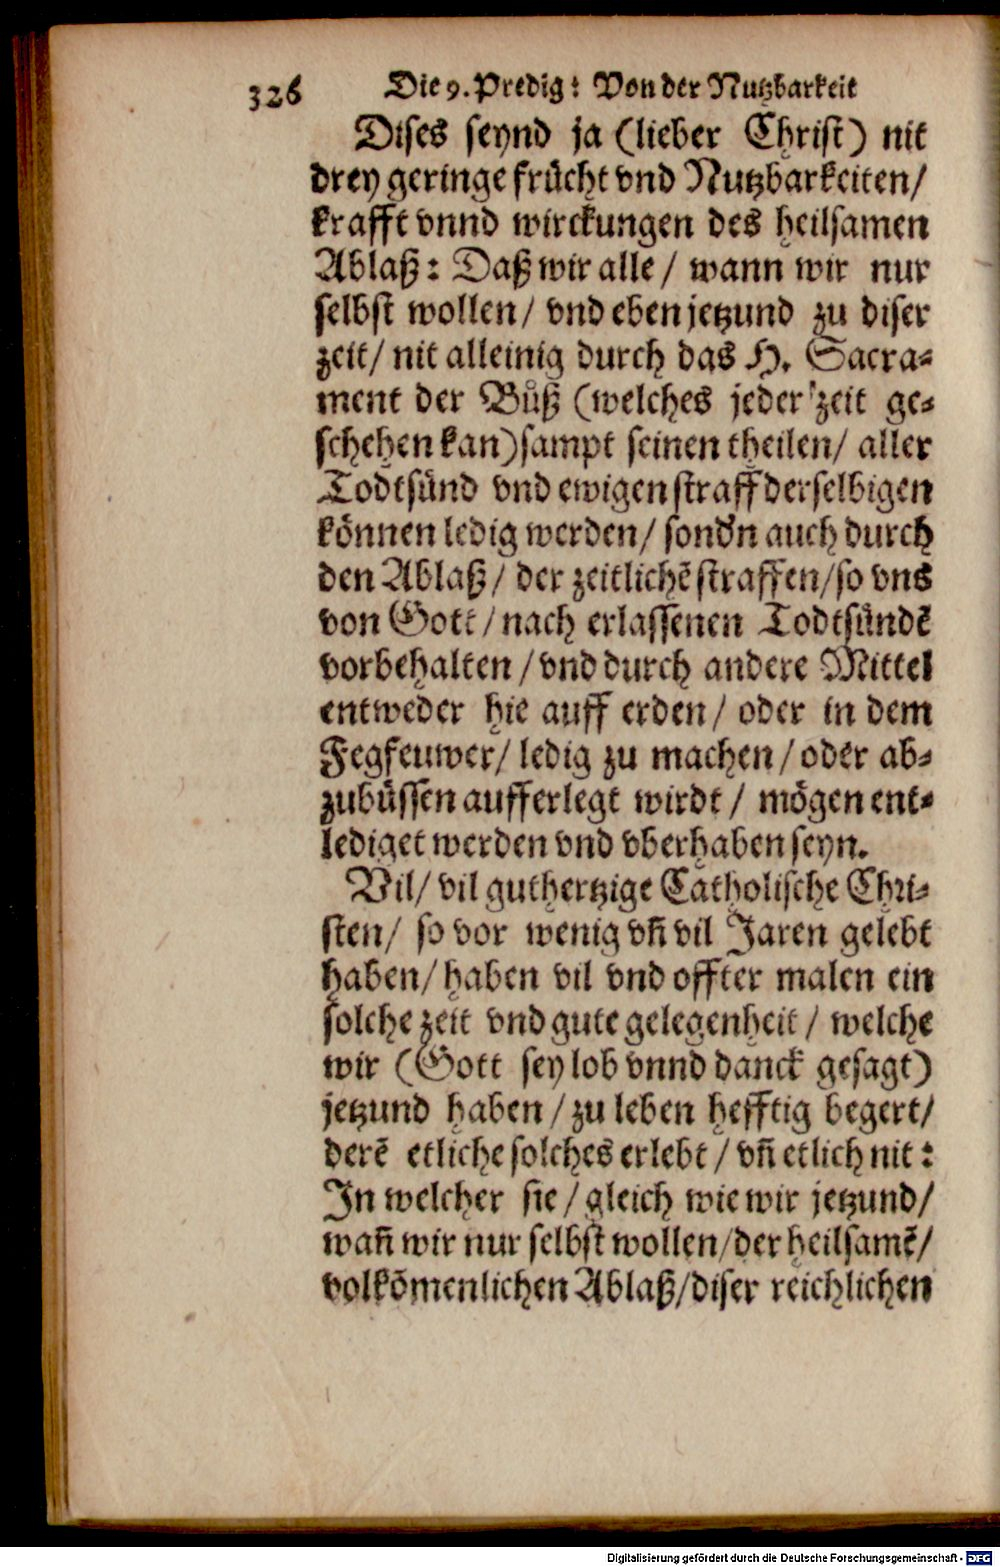 326 Die 9. Predig: Von der Nutzbarkeit
Dises seynd ja (lieber Christ) nit
drey geringe frücht vnd Nutzbarkeiten/
krafft vnnd wirckungen des heilsamen
Ablaß: Daß wir alle/ wann wir nur
selbst wollen/ vnd eben jetzund zu diser
zeit/ nit alleinig durch das H. Sacra-
ment der Bůß (welches jeder zeit ge-
schehen kan) sampt seinen theilen/ aller
Todtsünd vnd ewigen straff derselbigen
können ledig werden/ sond'n auch durch
den Ablaß/ der zeitlichẽ straffen/ so vns
von Gott/ nach erlassenen Todtsündẽ
vorbehalten/ vnd durch andere Mittel
entweder hie auff erden/ oder in dem
Fegfeuwer/ ledig zu machen/ oder ab-
zubüssen aufferlegt wirdt/ mögen ent-
lediget werden vnd vberhaben seyn.
Vil/ vil guthertzige Catholische Chri-
sten/ so vor wenig vñ vil Jaren gelebt
haben/ haben vil vnd offter malen ein
solche zeit vnd gute gelegenheit/ welche
wir (Gott sey lob vnnd danck gesagt)
jetzund haben/ zu leben hefftig begert/
derẽ etliche solches erlebt/ vñ etlich nit:
In welcher sie/ gleich wie wir jetzund/
wañ wir nur selbst wollen/ der heilsamẽ/
volkõmenlichen Ablaß/ diser reichlichen
Digitalisierung gefördert durch die Deutsche Forschungsgemeinschaft - DFG